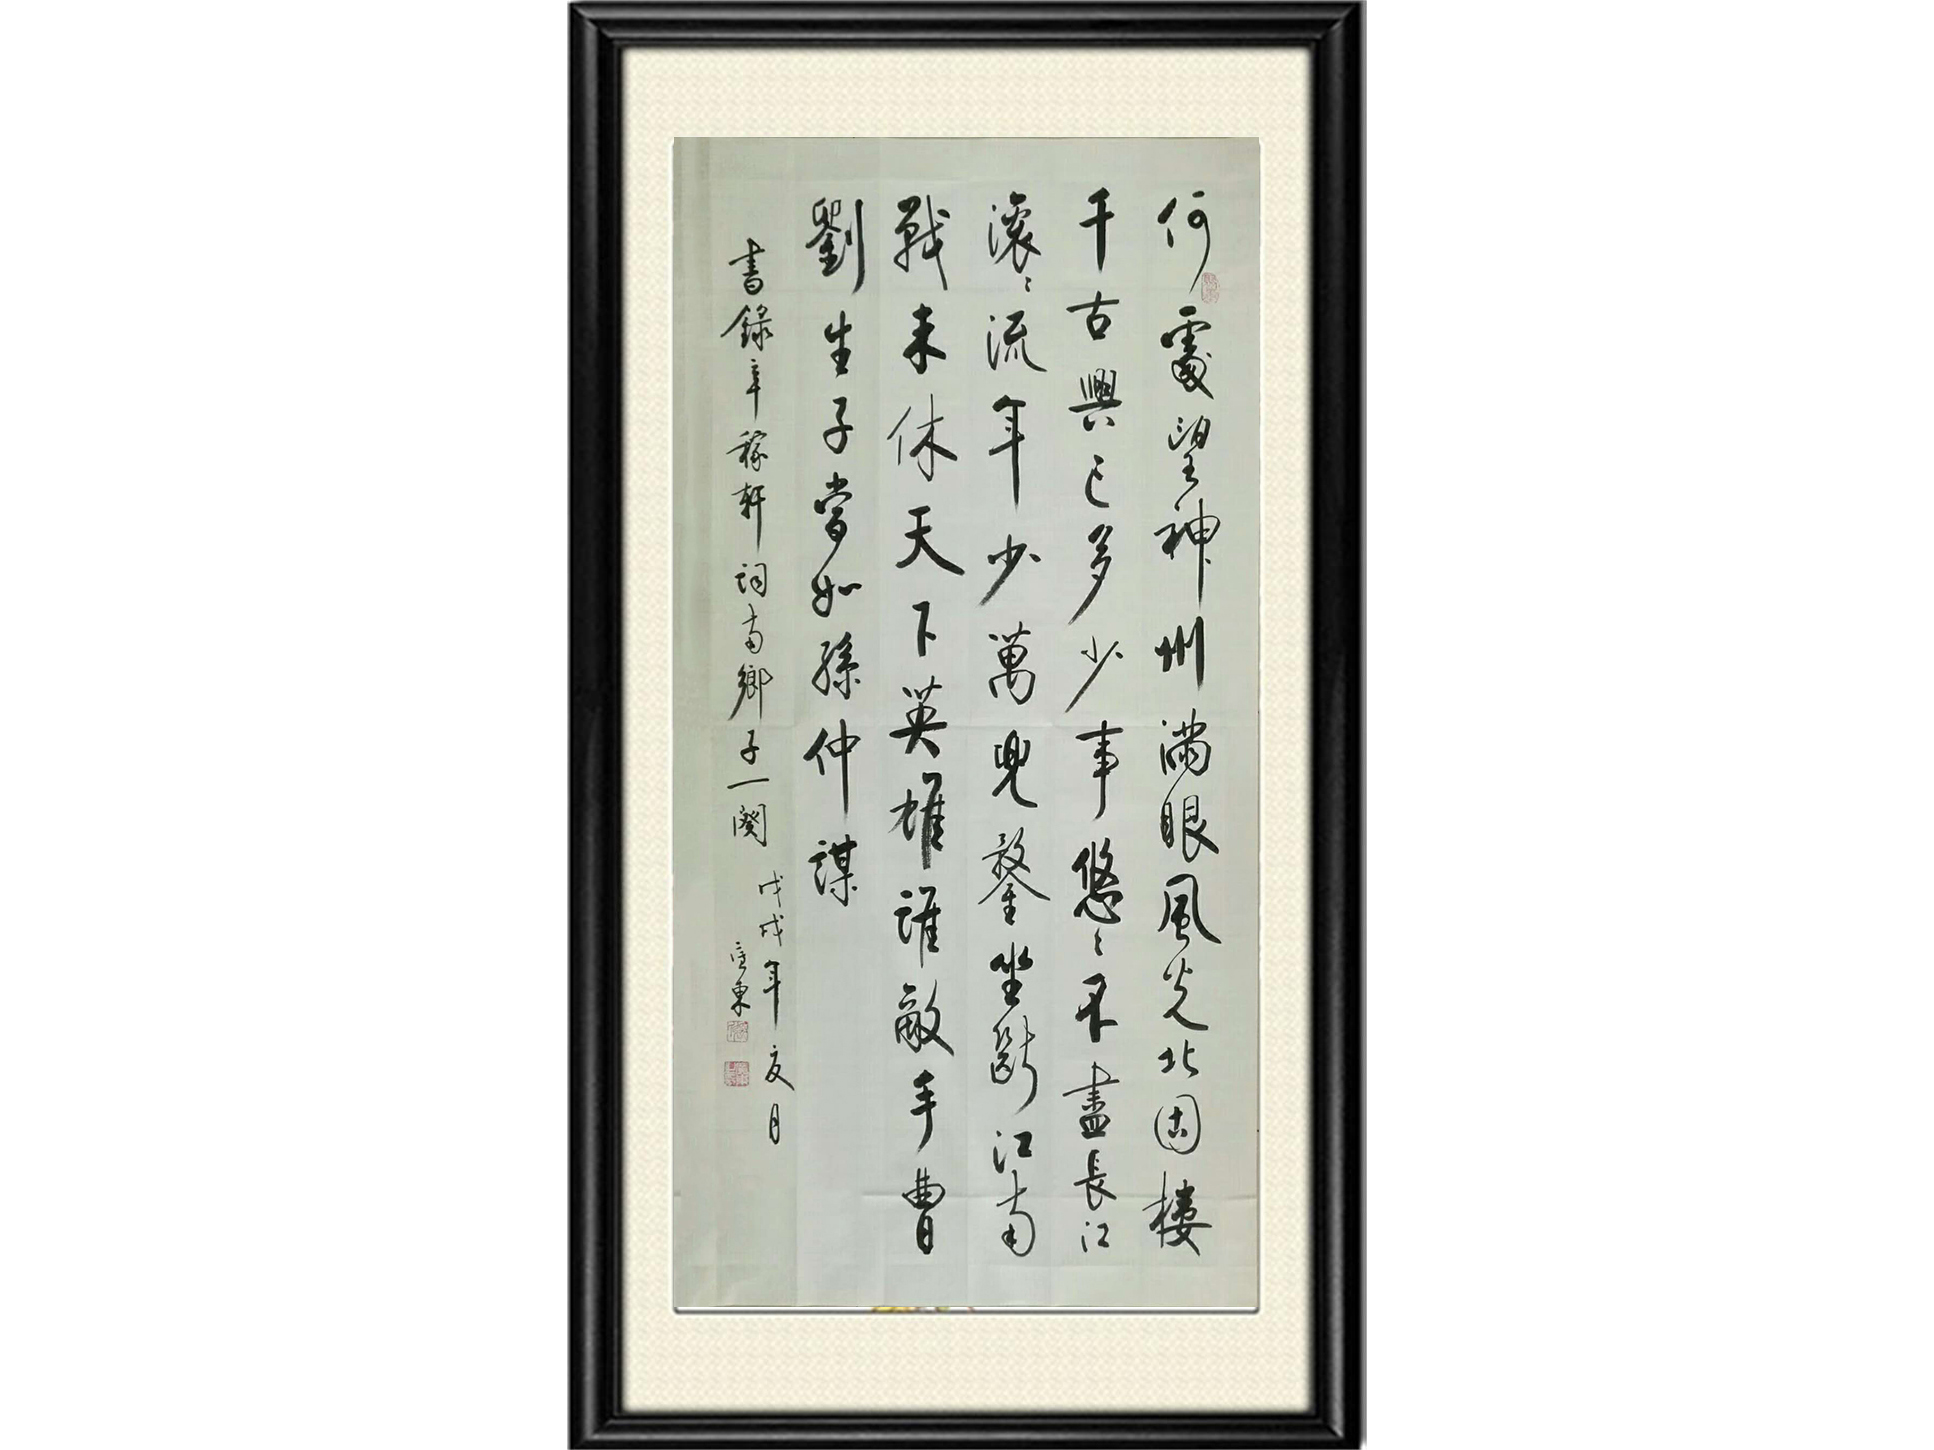 何處望神州滿眼風光北固樓
千古興亡多少事悠〻不盡長江
滾〻流年少萬兜鍪坐斷江南
戰未休天下英雄誰敵手曹
劉生子當如孫仲謀
書錄辛稼軒詞南鄉子一闋
戊戌年夏月
東